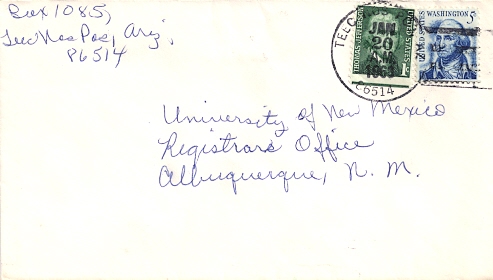 Box 1085,
Teec Nos Pos, Ariz.
86514
TEEC NOS POS
JAN
20
A.M.
86514
THOMAS JEFFERSON
UNITED STATES
1c
WASHINGTON 5c
University of New Mexico
Registrars Office
Albuquerque, N. M.